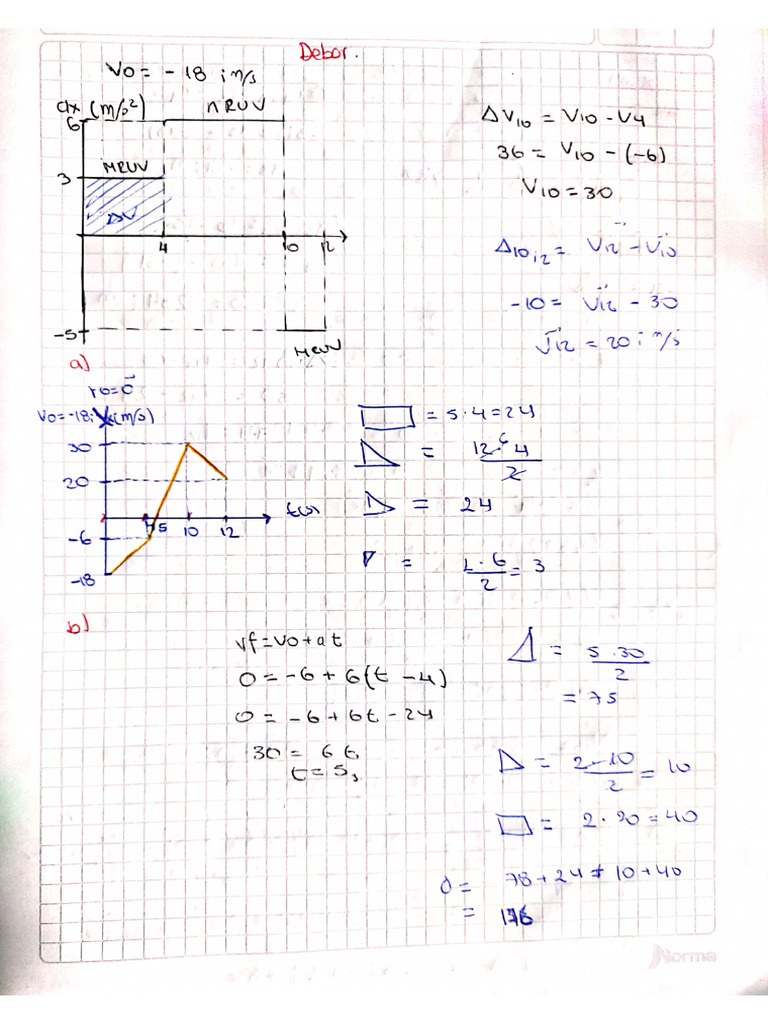 Deber.
Vo = - 18 i m/s
ax (m/s²)
6
MRUV
3
MRUV
ΔV
4
10
12
-5
MRUV
ΔV10 = V10 - V4
36 = V10 - (-6)
V10 = 30
Δ10,12 = V12 - V10
-10 = V12 - 30
V12 = 20 i m/s
a)
ro = 0
Vo = -18 i
(m/s)
30
20
-6
-18
4
5
10
12
t(s)
= 24
12 · 4
2
= 24
1 · 6
2
= 3
b)
vf = vo + at
0 = -6 + 6(t - 4)
0 = -6 + 6t - 24
30 = 6t
t = 5s
= 5 · 30
2
= 75
= 2 · 10
2
= 10
= 2 · 20 = 40
d = 78 + 24 + 10 + 40
=
Norma